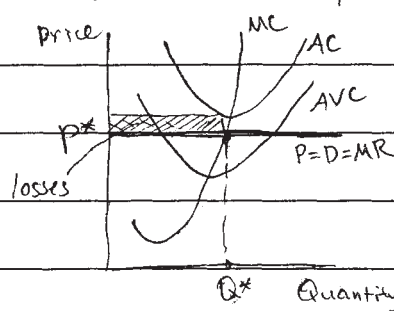 Price
MC
AC
AVC
P*
P=D=MR
losses
Q*
Quantity